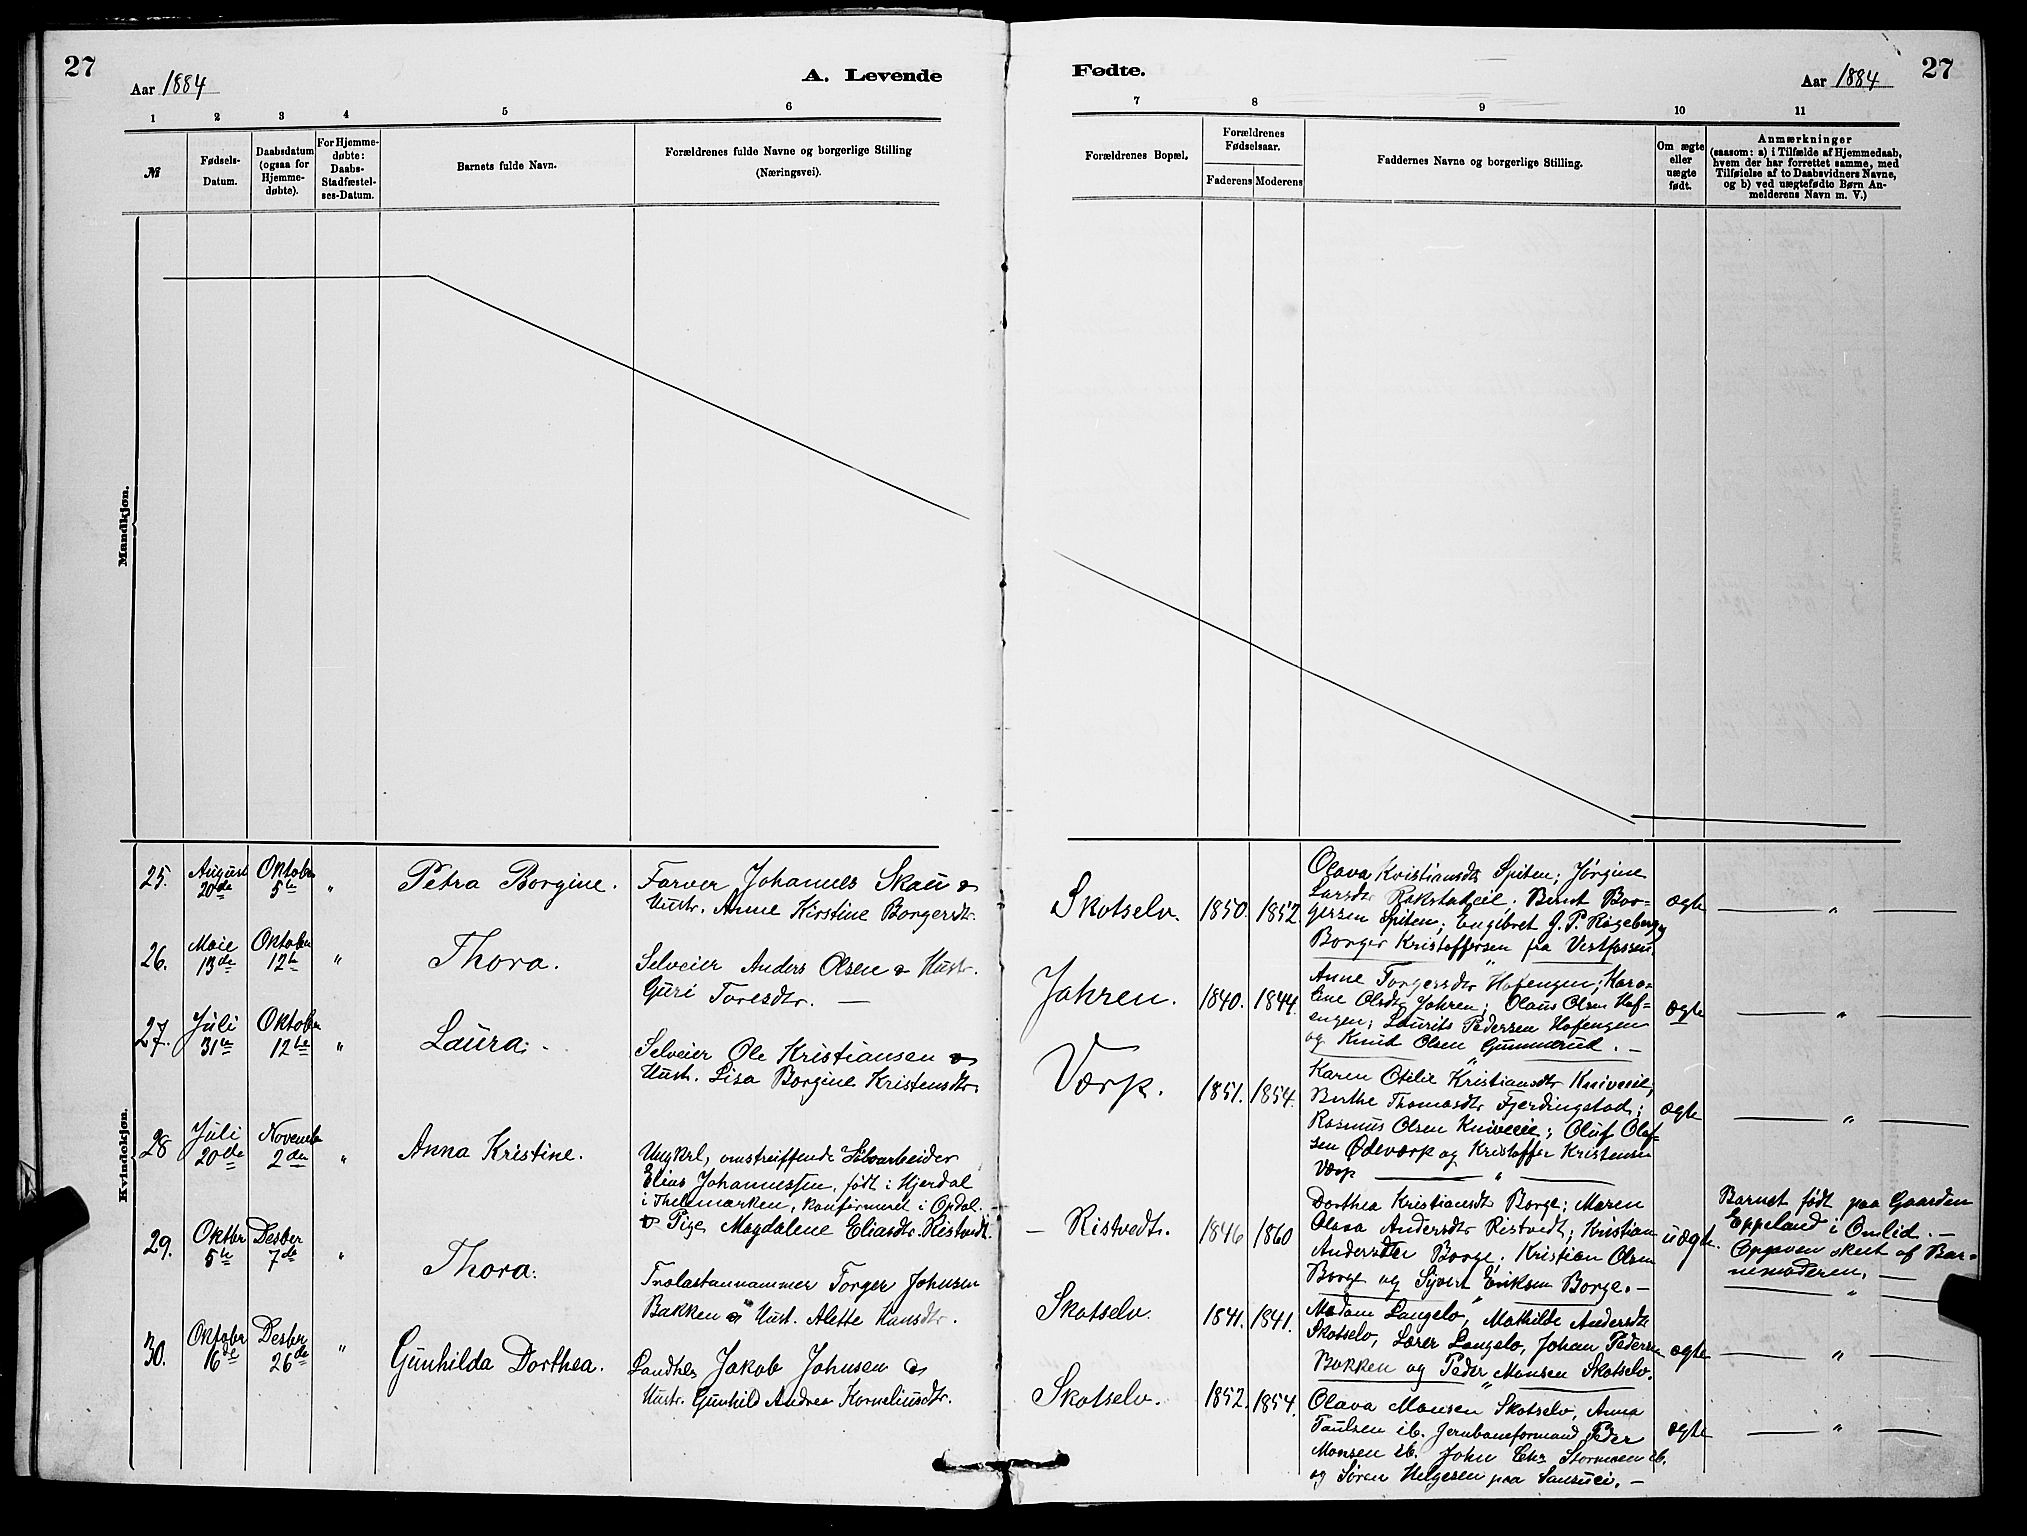 27
Aar 1884
A. Levende
1 2 3 4 5 6
№
Fødsels-
Datum.
Daabsdatum
(ogsaa for
Hjemme-
døbte).
For Hjemme-
døbte:
Daabs-
Stadfæstel-
ses-Datum.
Barnets fulde Navn.
Forældrenes fulde Navne og borgerlige Stilling
(Næringsvei).
Mandkjøn.
Kvindekjøn.
25. August 20de Oktober 5te " Petra Borgine. Farver Johannes Skau &
Hustr. Anne Kirstine Borgersdtr.
26. Maie 13de Oktober 12te " Thora. Selveier Anders Olsen & Hustr.
Guri Toresdtr. —
27. Juli 31te Oktober 12te " Laura. Selveier Ole Kristiansen &
Hust. Lisa Borgine Kristensdtr.
28 Juli 20de November 2den " Anna Kristine. Ungkrl, omstreiffende Sølvarbeider
Elias Johannessen, født i Hjerdal
i Thelemarken, konfirmeret i Opdal.
& Pige Magdalene Eliasdtr. Ristvedt.
29. Oktbr 5te Desber 7de " Thora. Johnsen
Bakken & Hust. Alette Hansdtr.
30. Oktobr 16de Desbr 26de " Gunhilda Dorthea. Landhdl. Jakob Johnsen &
Hustr. Gunhild Andrea Korneliusdtr.
Fødte.
Aar 1884
27
7 8 9 10 11
Forældrenes Bopæl.
Forældrenes
Fødselsaar.
Faderens Moderens
Faddernes Navne og borgerlige Stilling.
Om ægte
eller
uægte
født.
Anmærkninger
(saasom: a) i Tilfælde af Hjemmedaab,
hvem der har forrettet samme, med
Tilføielse af to Daabsvidners Navne,
og b) ved uægtefødte Børn An-
melderens Navn m. V.)
Skotselv. 1850. 1852 Olava Kristiansdtr Spiten; Jørgine
Larsdtr. Bernt Bor-
gersen Spiten; Engebret J. P. Rageberg
Borger Kristoffersen fra Vestfossen. ægte — " —
Jahren. 1840. 1844. Anne Torgersdtr Hofengen; Karo-
line Olsdtr Jahren; Olaus Olsen Hof-
engen; Laurits Pedersen Hofengen
og Knut Olsen Gunnerud. — ægte — " —
Værp. 1851. 1854. Karen Otelie Kristiansdtr Kniveeie;
Berthe Thomasdtr Fjerdingstad;
Rasmus Olsen Kniveeie; Oluf Olef-
sen Ødeværp og Kristoffer Kristensen
Værp — " — ægte — " —
— Ristvedtr. 1846 1860 Dorthea Kristiansdt Borge; Maren
Olava Andersdtr Ristvedt; Kristian
Andersdter Borge; Kristian Olsen
Borge og Syvert Eriksen Borge. — uægte. Barnet født paa Gaarden
Eppeland i Omlid. —
Opgaven skeet af Bar-
nemoderen. —
Skotselv. 1841. 1841. Madam Langelo, Mathilde Andersdt.
Skotselv, Lærer Langelo, Johan Pedersen
Bakken og Peder Monsen Skotselv. ægte — " —
Skotselv. 1852. 1854. Olava Monsen Skotselv, Anna
Paulsen ib. Jernbaneformand Peder
Monsen ib. John Chr Stormoen ib.
og Søren Helgesen paa Sansuci. — ægte — " —